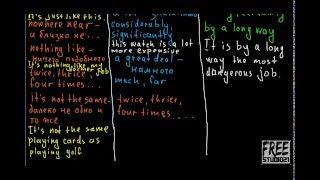 It's just like this.
nowhere near -
и близко не...
nothing like -
ничего подобного
It's nothing like my
former job.
twice, thrice,
four times...
It's not the same-
далеко не одно и
то же
It's not the same
playing cards as
playing golf.
considerably,
significantly
this watch is a lot
more expensive
a great deal -
намного
much, far
twice, thrice,
four times....
by a long way
It is by a long
way the most
dangerous job.
FREE
STUDIO21